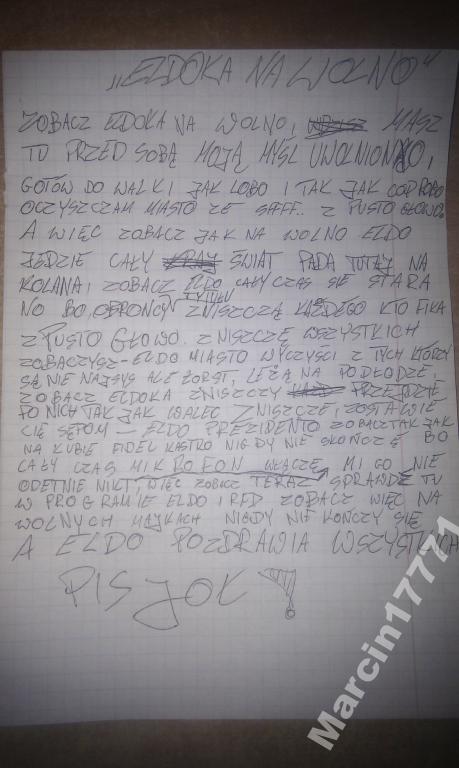 „ELDOKA NA WOLNO"
ZOBACZ ELDOKA NA WOLNO, MASZ
TU PRZED SOBĄ MOJĄ MYŚL UWOLNIONĄ,
GOTÓW DO WALKI JAK LOBO I TAK JAK COP ROBO
OCZYSZCZAM MIASTO ZE SFFF.. Z PUSTO GŁOWĄ
A WIĘC ZOBACZ JAK NA WOLNO ELDO
JEDZIE CAŁY ŚWIAT PADA TUTAJ NA
KOLANA I ZOBACZ ELDO CAŁY CZAS SIĘ STARA
NO BO, OBROŃCY TYTUŁU ZNISZCZĄ KAŻDEGO KTO FIKA
Z PUSTO GŁOWO. ZNISZCZĘ WSZYSTKICH
ZOBACZYSZ - ELDO MIASTO WYCZYŚCI Z TYCH KTÓRZY
SĄ NIE NAJSYS ALE ŻORST, LEŻĄ NA PODŁODZE,
ZOBACZ ELDOKA ZNISZCZY PRZEJDZIE
PO NICH TAK JAK WALEC ZNISZCZE, ZOSTAWIĘ
CIĘ SĘPOM - ELDO PREZIDENTO ZOBACZ TAK JAK
NA KUBIE FIDEL KASTRO NIGDY NIE SKOŃCZĘ BO
CAŁY CZAS MIKROFON WŁĄCZĘ, MI GO NIE
ODETNIE NIKT, WIĘC ZOBACZ TERAZ SPRAWDŹ TU
W PROGRAMIE ELDO I RFD ZOBACZ WIĘC NA
WOLNYCH MAJKACH NIGDY NIE KOŃCZY SIĘ
A ELDO POZDRAWIA WSZYSTKICH
PIS JOŁ
Marcin17771